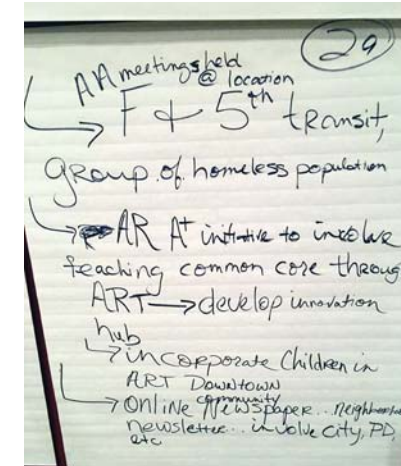 29
AA meetings held
@ location
F + 5th transit,
group of homeless population
AR A+ initiative to involve
teaching common core throug
ART → develop innovation
hub
→ incorporate Children in
ART Downtown
→ Online community Newspaper...
newsletter... involve city, PD,
etc